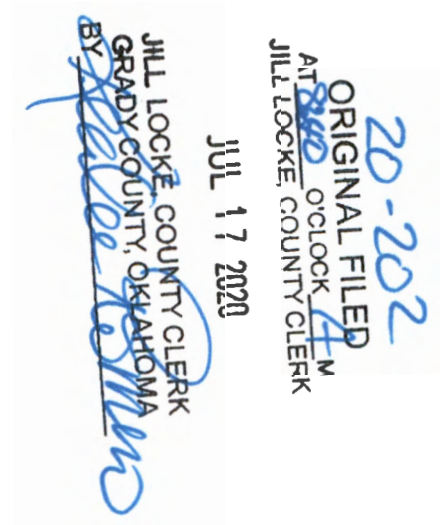 20-202
ORIGINAL FILED
AT 8:40 O'CLOCK A M
JILL LOCKE, COUNTY CLERK
JUL 17 2020
JILL LOCKE, COUNTY CLERK
GRADY COUNTY, OKLAHOMA
BY